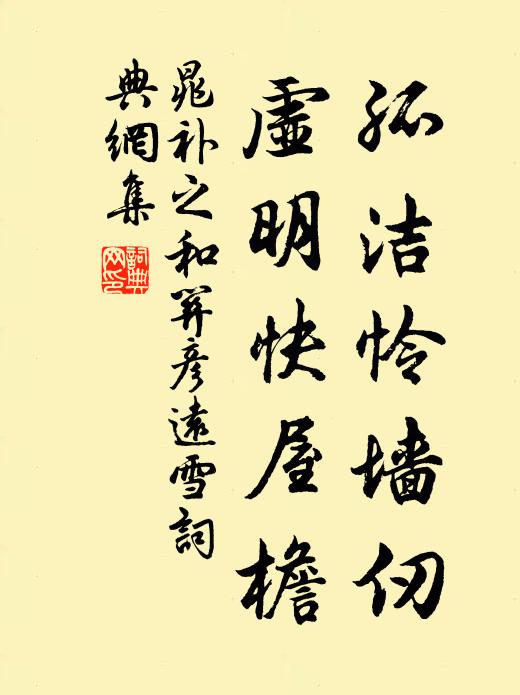 孤洁怜墙仞
虚明快屋檐
晁补之和关彦遠雪詞
典網集
詞典
网印